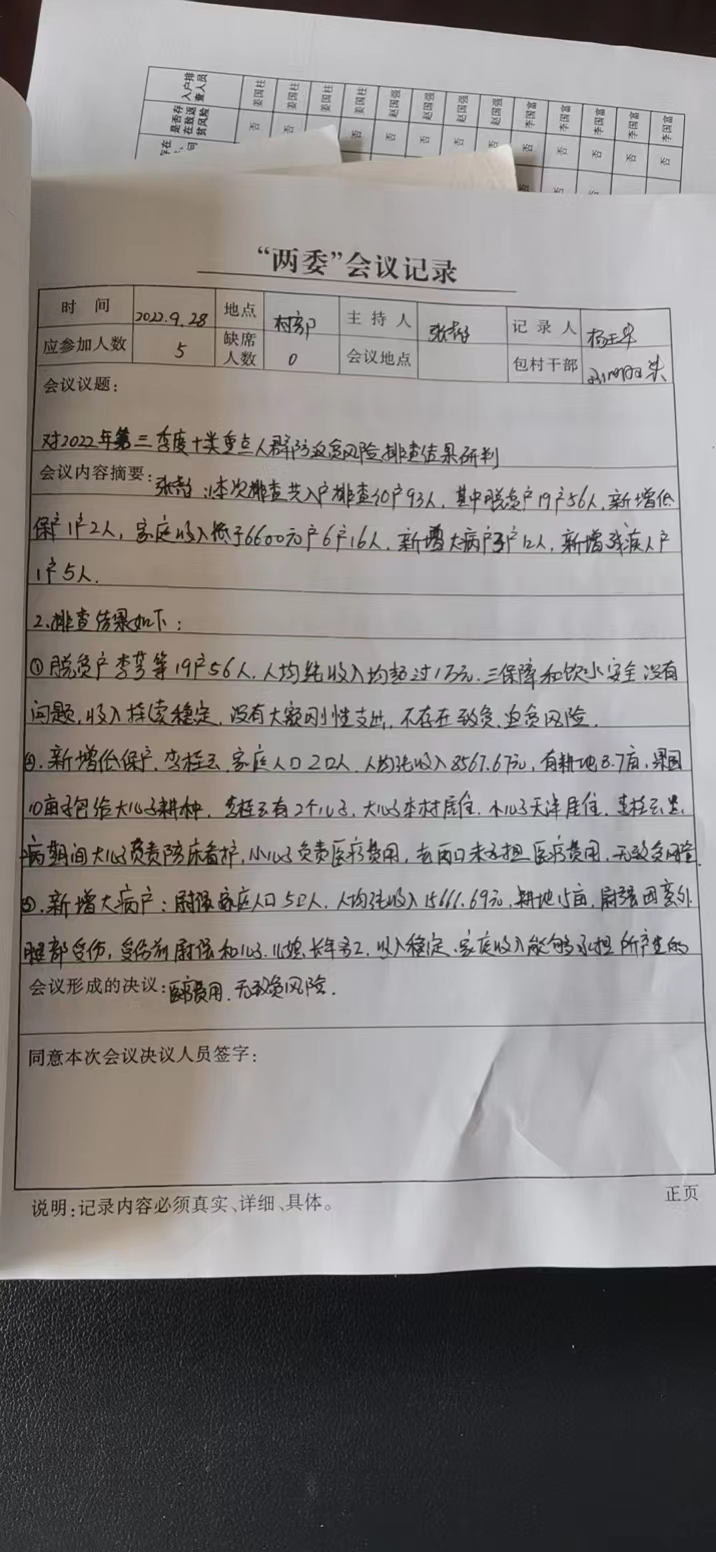 入户排查人员
是否存在致返贫风险
姜国柱 姜国柱 姜国柱 姜国柱 赵国强 赵国强 赵国强 赵国强 李国富 李国富 李国富 李国富 李国富
否 否 否 否 否 否 否 否 否 否 否
“两委”会议记录
时间 2022.9.28 地点 村部 主持人 记录人
应参加人数 5 缺席人数 0 会议地点 包村干部
会议议题:
对2022年第三季度十类重点人群防返贫风险排查结果研判
会议内容摘要: 1.本次排查共入户排查40户93人,其中脱贫户19户56人,新增低
保户1户2人,家庭收入低于6600元户6户16人,新增大病户3户12人,新增残疾人户
1户5人.
2.排查结果如下:
①脱贫户李等19户56人.人均纯收入均超过1万元.三保障和饮水安全没有
问题,收入持续稳定,没有大额刚性支出,不存在致贫、返贫风险.
②.新增低保户,李桂云,家庭人口2口人,人均纯收入8567.67元,有耕地3.7亩,果园
10亩承包给大儿子耕种,李桂云有2个儿子,大儿子本村居住,小儿子天津居住,李桂云生
病期间大儿子负责陪床看护,小儿子负责医疗费用,老两口未承担医疗费用,无致贫风险.
③.新增大病户:尉强家庭人口5口人,人均纯收入15661.69元,耕地15亩,尉强因意外
腿部受伤,受伤前尉强和儿子、儿媳长年务工,收入稳定,家庭收入能够承担所产生的
会议形成的决议: 医疗费用.无致贫风险.
同意本次会议决议人员签字:
说明:记录内容必须真实、详细、具体。
正页